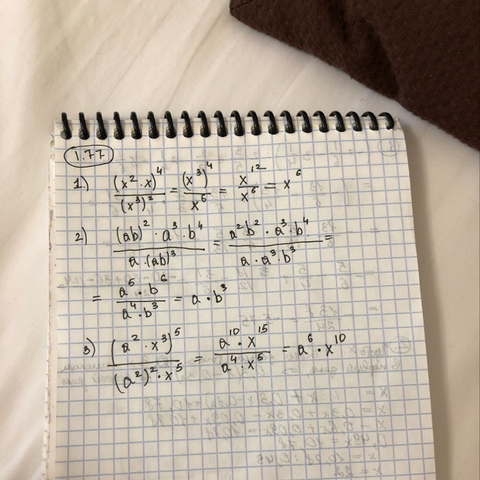 1.77
1.) (x² · x)⁴ / (x³)² = (x³)⁴ / x⁶ = x¹² / x⁶ = x⁶
2) (ab)² · a³ · b⁴ / a · (ab)³ = a² b² · a³ · b⁴ / a · a³ · b³ =
= a⁵ · b⁶ / a⁴ · b³ = a · b³
3) (a² · x³)⁵ / (a²)² · x⁵ = a¹⁰ · x¹⁵ / a⁴ · x⁵ = a⁶ · x¹⁰